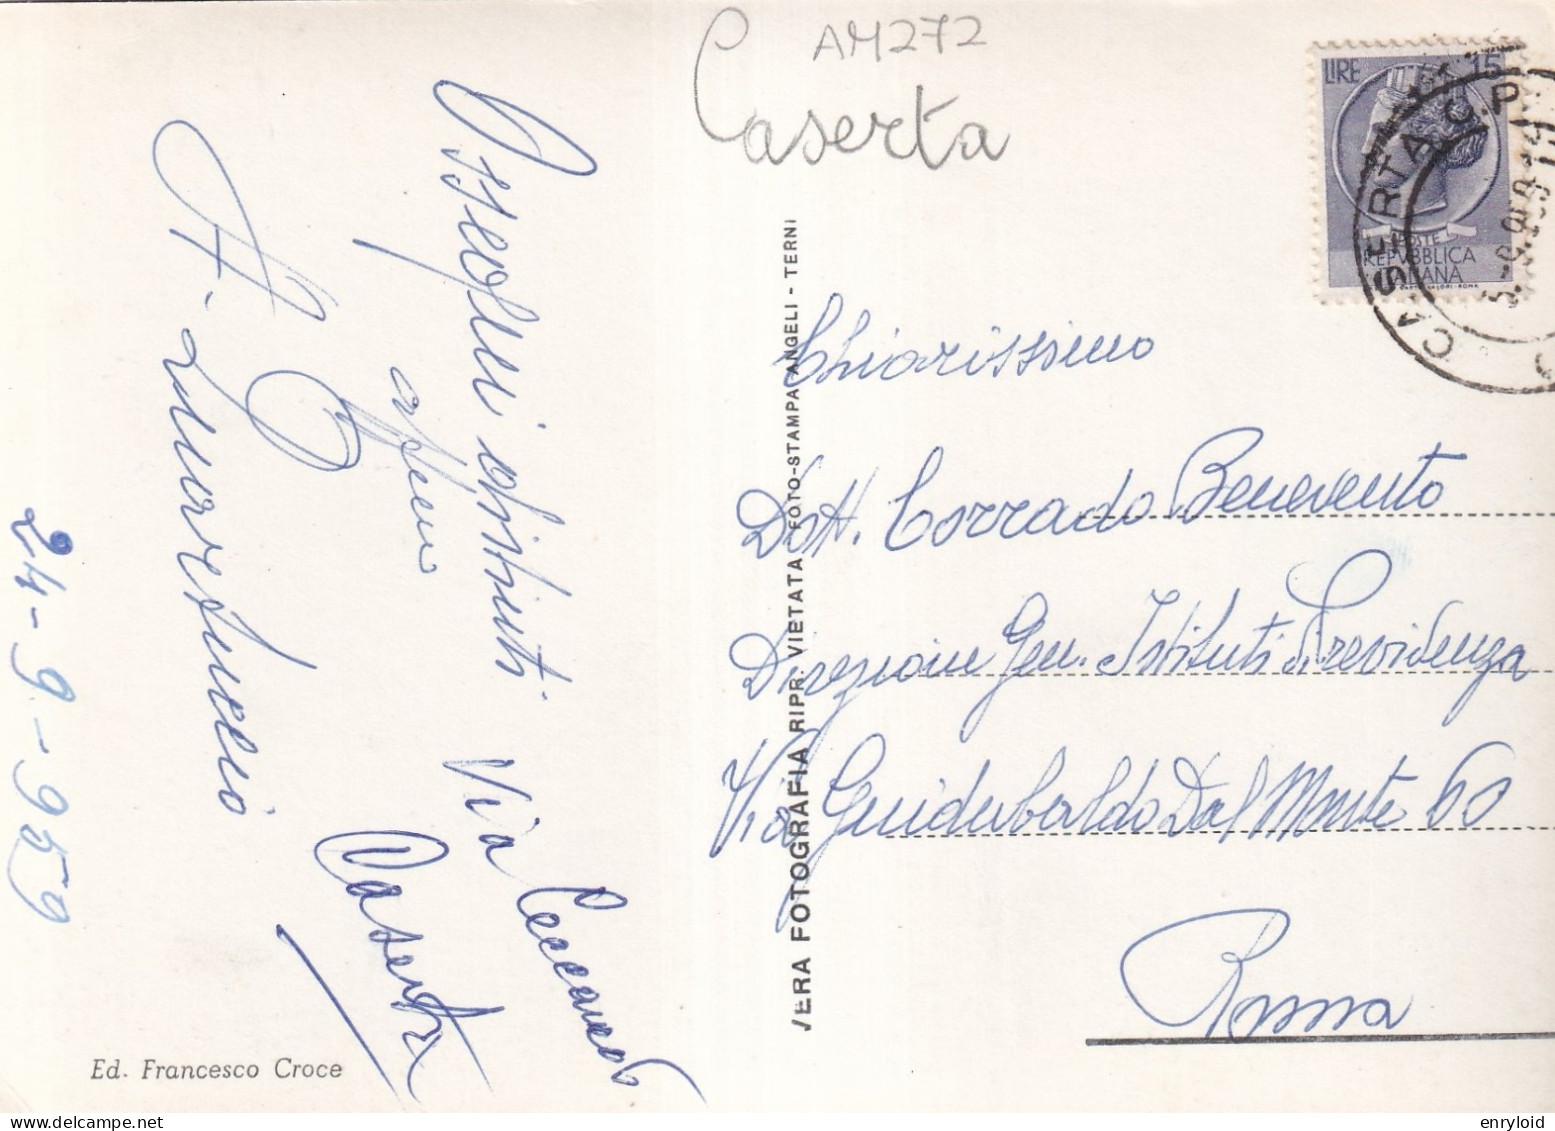 AM272
Caserta
LIRE 15
POSTE
REPVBBLICA
ITALIANA
CASERTA C.P.
Ossequi distinti
A. Quarantuccio
Via Ceccano
Caserta
24-9-959
Ed. Francesco Croce
VERA FOTOGRAFIA RIPR. VIETATA FOTO-STAMPA ANGELI - TERNI
Chiarissimo
Dott. Corrado Benevento
Direzione Gen. Istituti Previdenza
Via Guidubaldo Dal Monte 60
Roma
enryloid